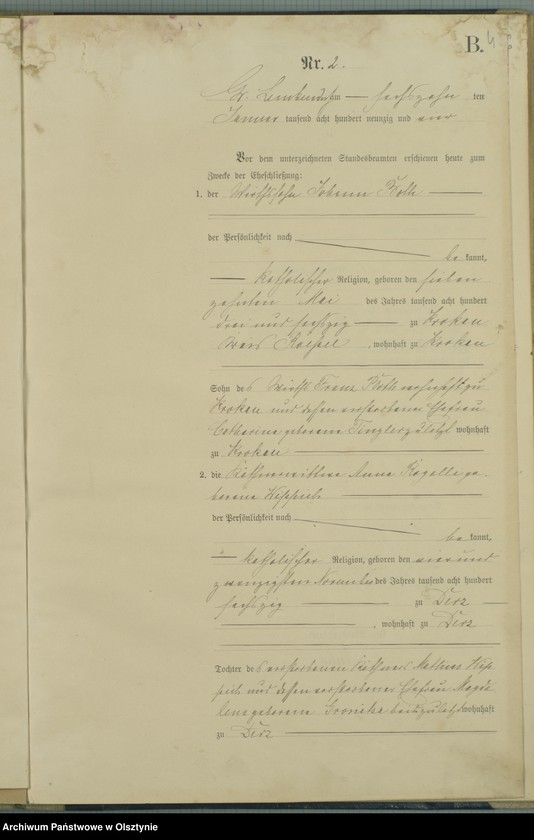 B. 4
Nr. 2.
Gr. Lemkendorf am sechszehn ten
Januar tausend acht hundert neunzig und
Vor dem unterzeichneten Standesbeamten erschienen heute zum
Zwecke der Eheschließung:
1. der Wirthssohn Johann Roth
der Persönlichkeit nach
be kannt,
katholischer Religion, geboren den sieben
zehnten Mai des Jahres tausend acht hundert
drei und sechszig zu Kroken
Kreis Rößel, wohnhaft zu Kroken
Sohn des Wirths Franz Roth wohnhaft zu
Kroken und dessen verstorbenen Ehefrau
Catharina geborene zuletzt wohnhaft
zu Kroken
2. die Anna Rogalla ge-
borene
der Persönlichkeit nach
be kannt,
katholischer Religion, geboren den vierund
zwanzigsten November des Jahres tausend acht hundert
sechszig zu Derz
, wohnhaft zu Derz
Tochter des verstorbenen Mathes
und dessen verstorbenen Ehefrau Magda
lena geborene zuletzt wohnhaft
zu Derz
Archiwum Państwowe w Olsztynie